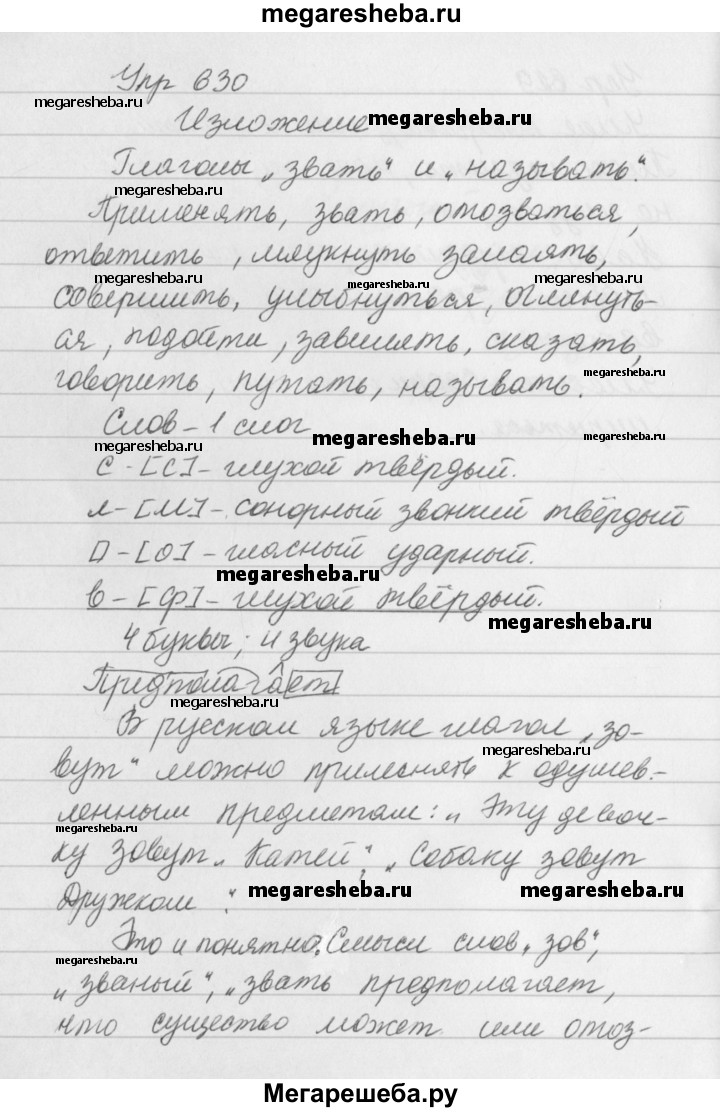 megaresheba.ru
Упр 630
megaresheba.ru
Изложение megaresheba.ru
Глаголы „звать“ и „называть“.
megaresheba.ru
Применять, звать, отозваться,
ответить, мяукнуть залаять,
megaresheba.ru megaresheba.ru
совершить, улыбнуться, оглянуть-
ся, подойти, завилять, сказать,
megaresheba.ru
говорить, путать, называть.
Слов - 1 слог megaresheba.ru
megaresheba.ru
с - [с] - глухой твёрдый.
л - [л] - сонорный звонкий твёрдый
о - [о] - гласный ударный.
megaresheba.ru
в - [ф] - глухой твёрдый.
megaresheba.ru
4 буквы; 4 звука
Предполагает
megaresheba.ru
В русском языке глагол „зо-
megaresheba.ru
вут“ можно применять к одушев-
ленным предметам: „Эту девоч-
megaresheba.ru
ку зовут „Катей“, „Собаку зовут
Дружком“. megaresheba.ru megaresheba.ru
Это и понятно. Смысл слов „зов“,
megaresheba.ru
„званый“, „звать предполагает,
что существо может или отоз-
megaresheba.ru
Мегарешеба.ру